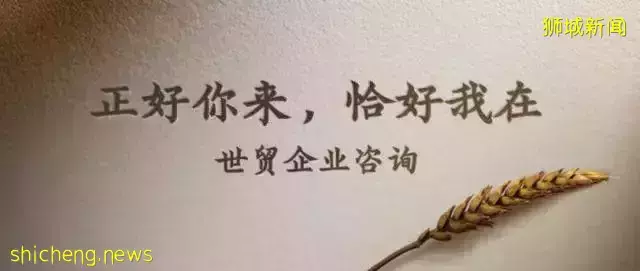 狮城新闻
正好你来，恰好我在
世贸企业咨询
shicheng.news